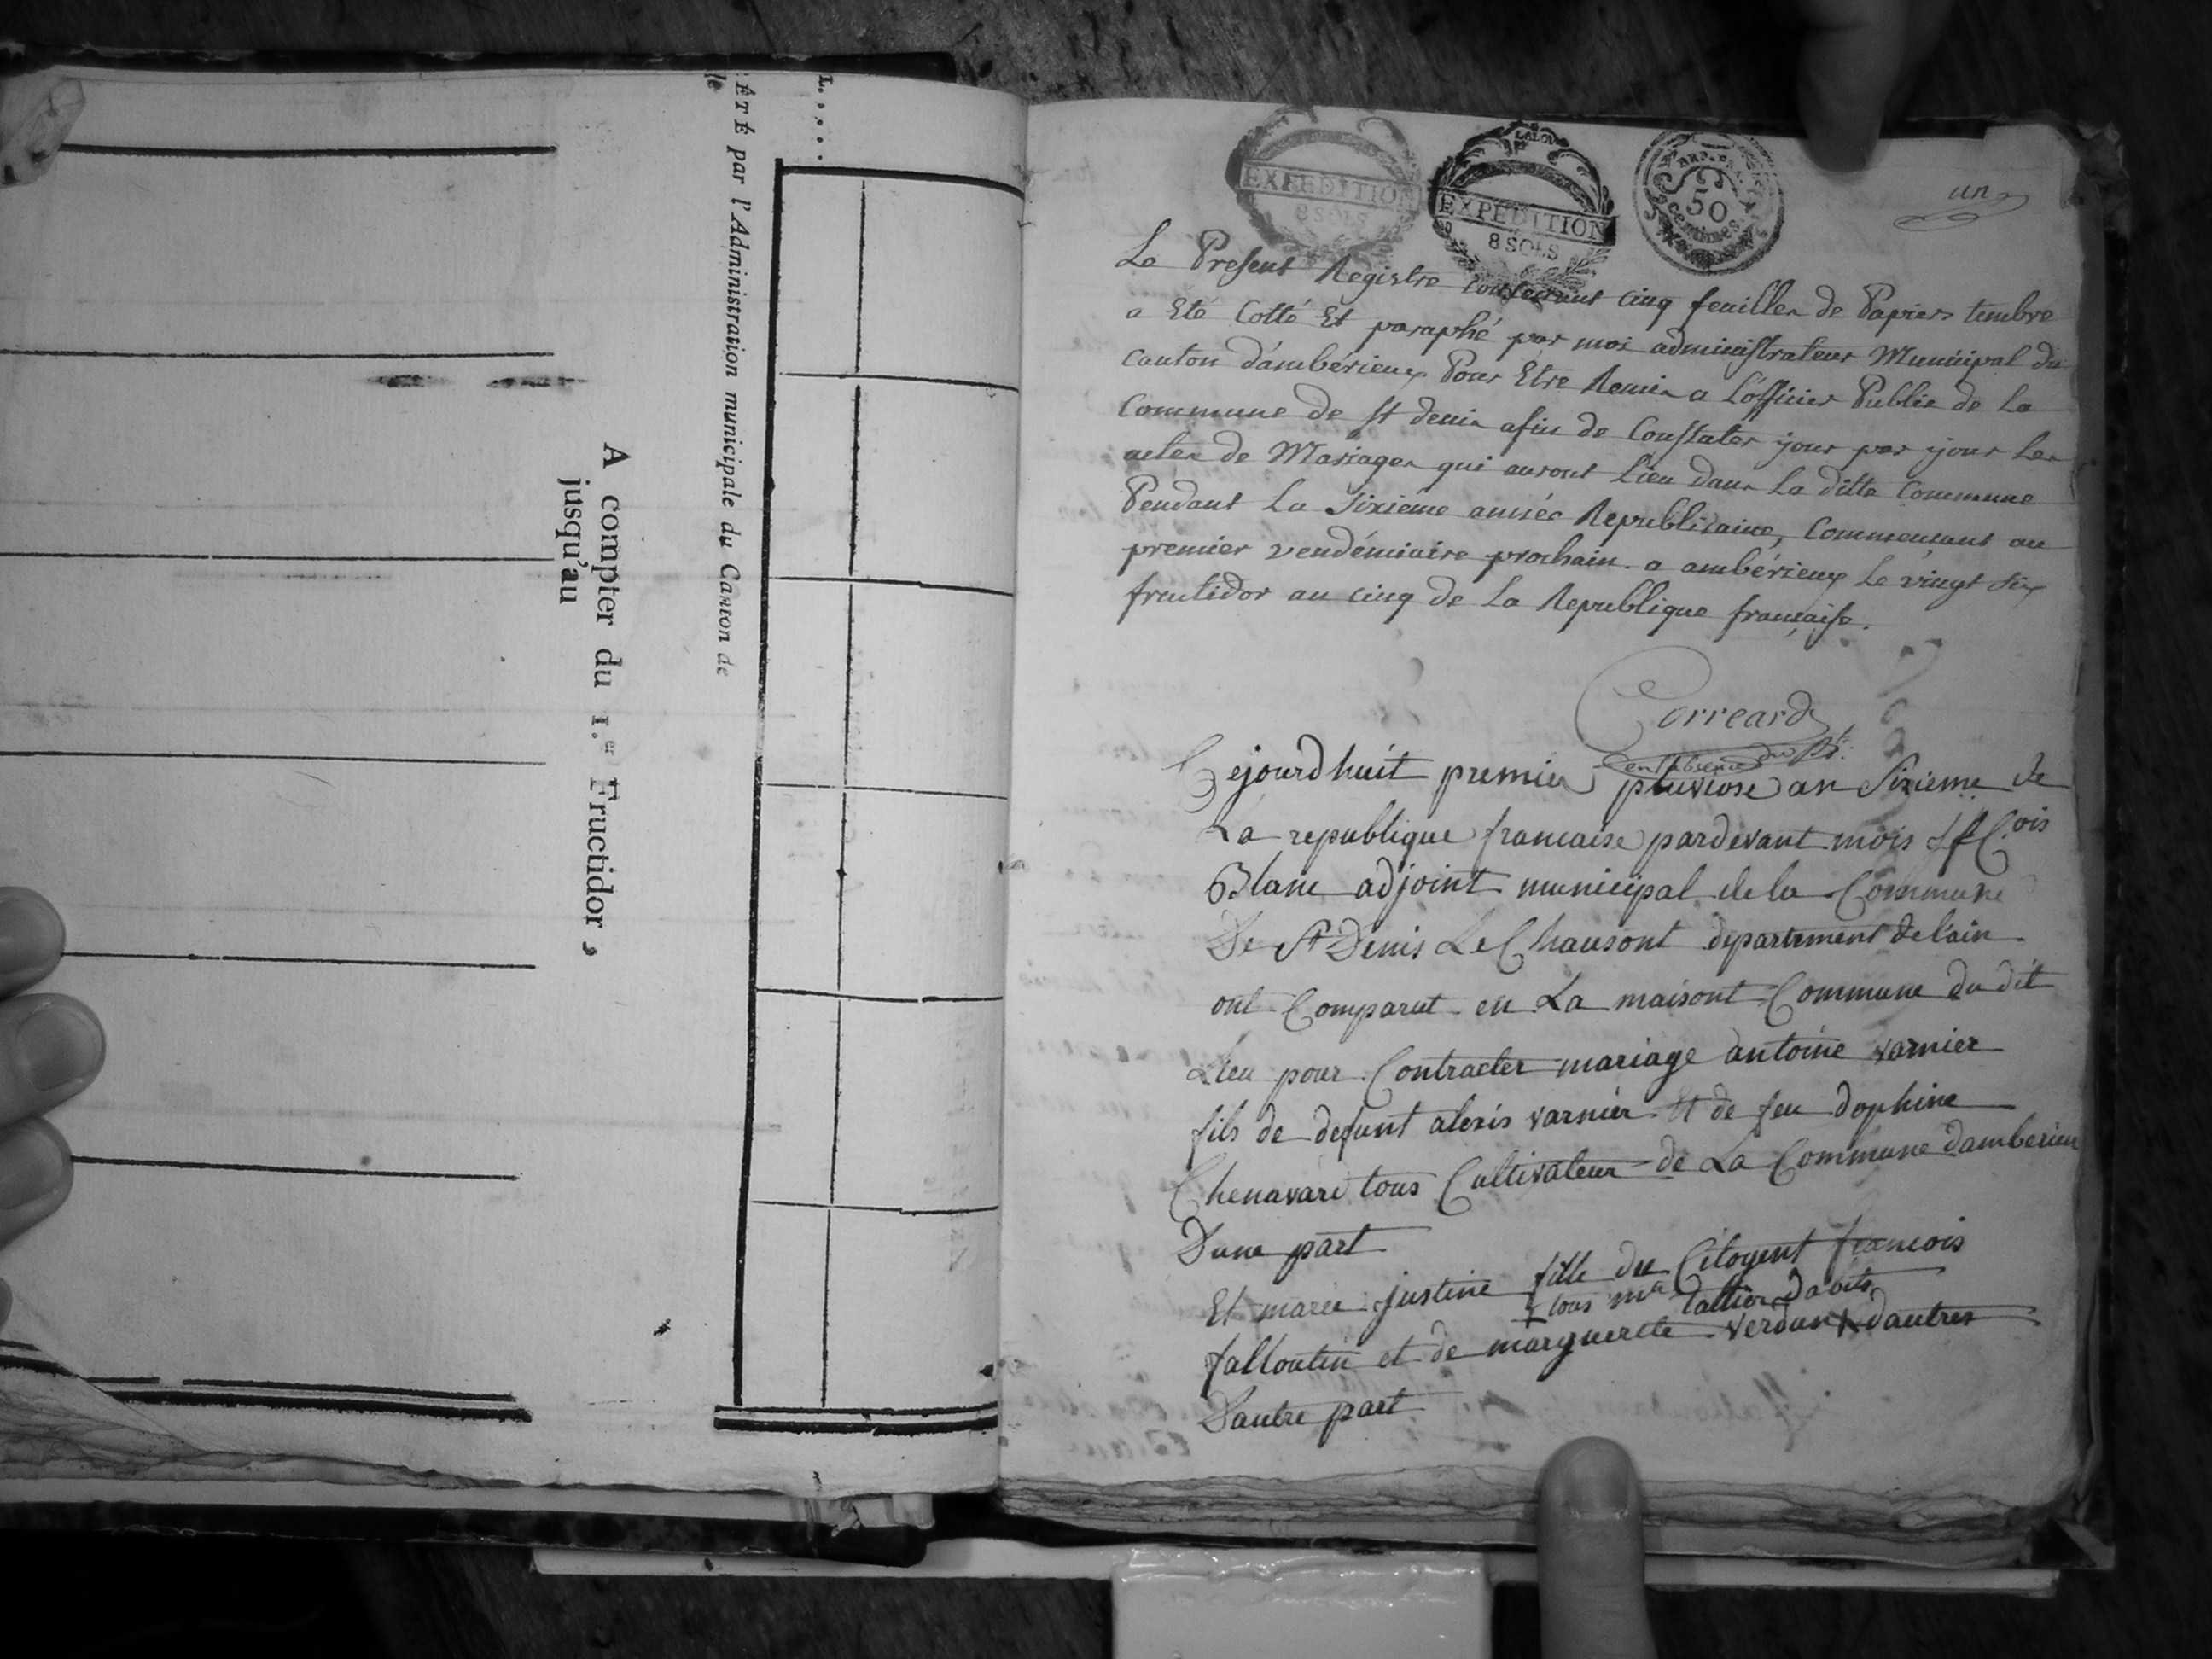 L. . . . .
ÉTÉ par l'Administration municipale du Canton de
le
A compter du 1.er Fructidor,
jusqu'au
EXPEDITION
8 SOLS
EXPEDITION
8 SOLS
REP. F.
50
centimes
un
Le Present Registre contenant cinq feuilles de Papier timbre
a Eté Cotté Et paraphé par moi administrateur Municipal du
Canton d'ambérieux Pour Etre Remis a L'officier Public de La
Commune de St denis afin de Constater jour par jour Les
actes de Mariages qui auront Lieu dans La ditte Commune
Pendant La Sixieme année Republicaine, Commencant au
premier vendémiaire prochain. a ambérieux Le vingt six
fructidor an cinq de La Republique française.
Correard
en l'absence du Pt.
Cejourdhuit premier pluviose an Sixieme de
La republique francaise pardevant mois
Blanc adjoint municipal de la Commune
De St Denis Le Chausont departement de l'ain
ont Comparut en La maisont Commune du dit
Lieu pour Contracter mariage antoine varnier
fils de defunt alexis varnier Et de feu dophine
Chenavari tous Cultivateur de La Commune damberieu
Dune part
Et marie justine fille du Citoyent francois
‡ tous
falloutin et de marguerete verdun dautres
Dautre part